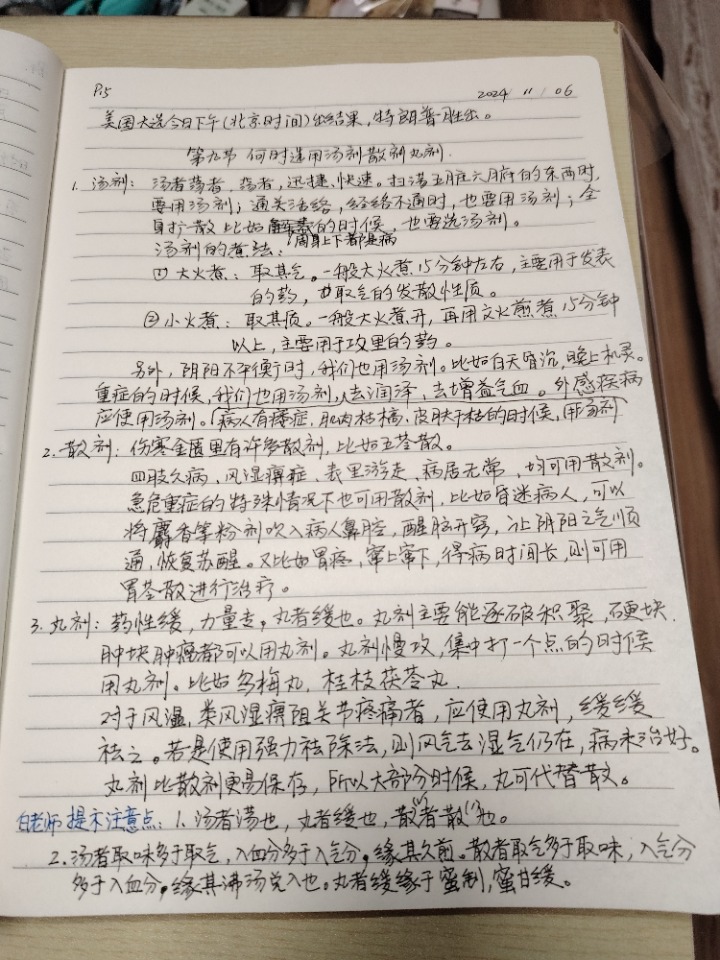 P15 2024 11/06
美国大选今日下午(北京时间)出结果,特朗普胜出。
第九节 何时选用汤剂散剂丸剂.
1. 汤剂: 汤者荡者,荡者,迅捷、快速。扫荡五脏六腑的东西时,
要用汤剂;通关活络,经络不通时,也要用汤剂;全
身扩散比如解表的时候,也要选汤剂。
汤剂的煮法: 周身上下都是病
① 大火煮: 取其气。一般大火煮15分钟左右,主要用于发表
的药,取气的发散性质。
②小火煮: 取其质。一般大火煮开,再用文火煎煮15分钟
以上,主要用于攻里的药。
另外,阴阳不平衡时,我们也用汤剂。比如白天昏沉,晚上机灵。
重症的时候,我们也用汤剂,去润泽,去增益气血。外感疾病
应使用汤剂。病人有痿症,肌肉枯槁,皮肤干枯的时候,用汤剂
2. 散剂: 伤寒金匮里有许多散剂,比如五苓散。
四肢久病、风湿痹症、表里游走、病居无常,均可用散剂。
急危重症的特殊情况下也可用散剂,比如昏迷病人,可以
将麝香等粉剂吹入病人鼻腔,醒脑开窍,让阴阳之气顺
通,恢复苏醒。又比如胃疼,窜上窜下,得病时间长,则可用
胃苓散进行治疗。
3. 丸剂: 药性缓,力量专。丸者缓也。丸剂主要能逐破积聚,硬块.
肿块肿瘤都可以用丸剂。丸剂慢攻,集中打一个点的时候
用丸剂。比如乌梅丸,桂枝茯苓丸.
对于风温,类风湿痹阻关节疼痛者,应使用丸剂,缓缓
祛之。若是使用强力祛除法,则风气去湿气仍在,病未治好。
丸剂比散剂更易保存,所以大部分时候,丸可代替散。
白老师提示注意点: 1. 汤者荡也,丸者缓也,散者散也。
2. 汤者取味多于取气,入血分多于入气分,缘其久煎。散者取气多于取味,入气分
多于入血分,缘其沸汤兑入也。丸者缓缘于蜜制,蜜甘缓。